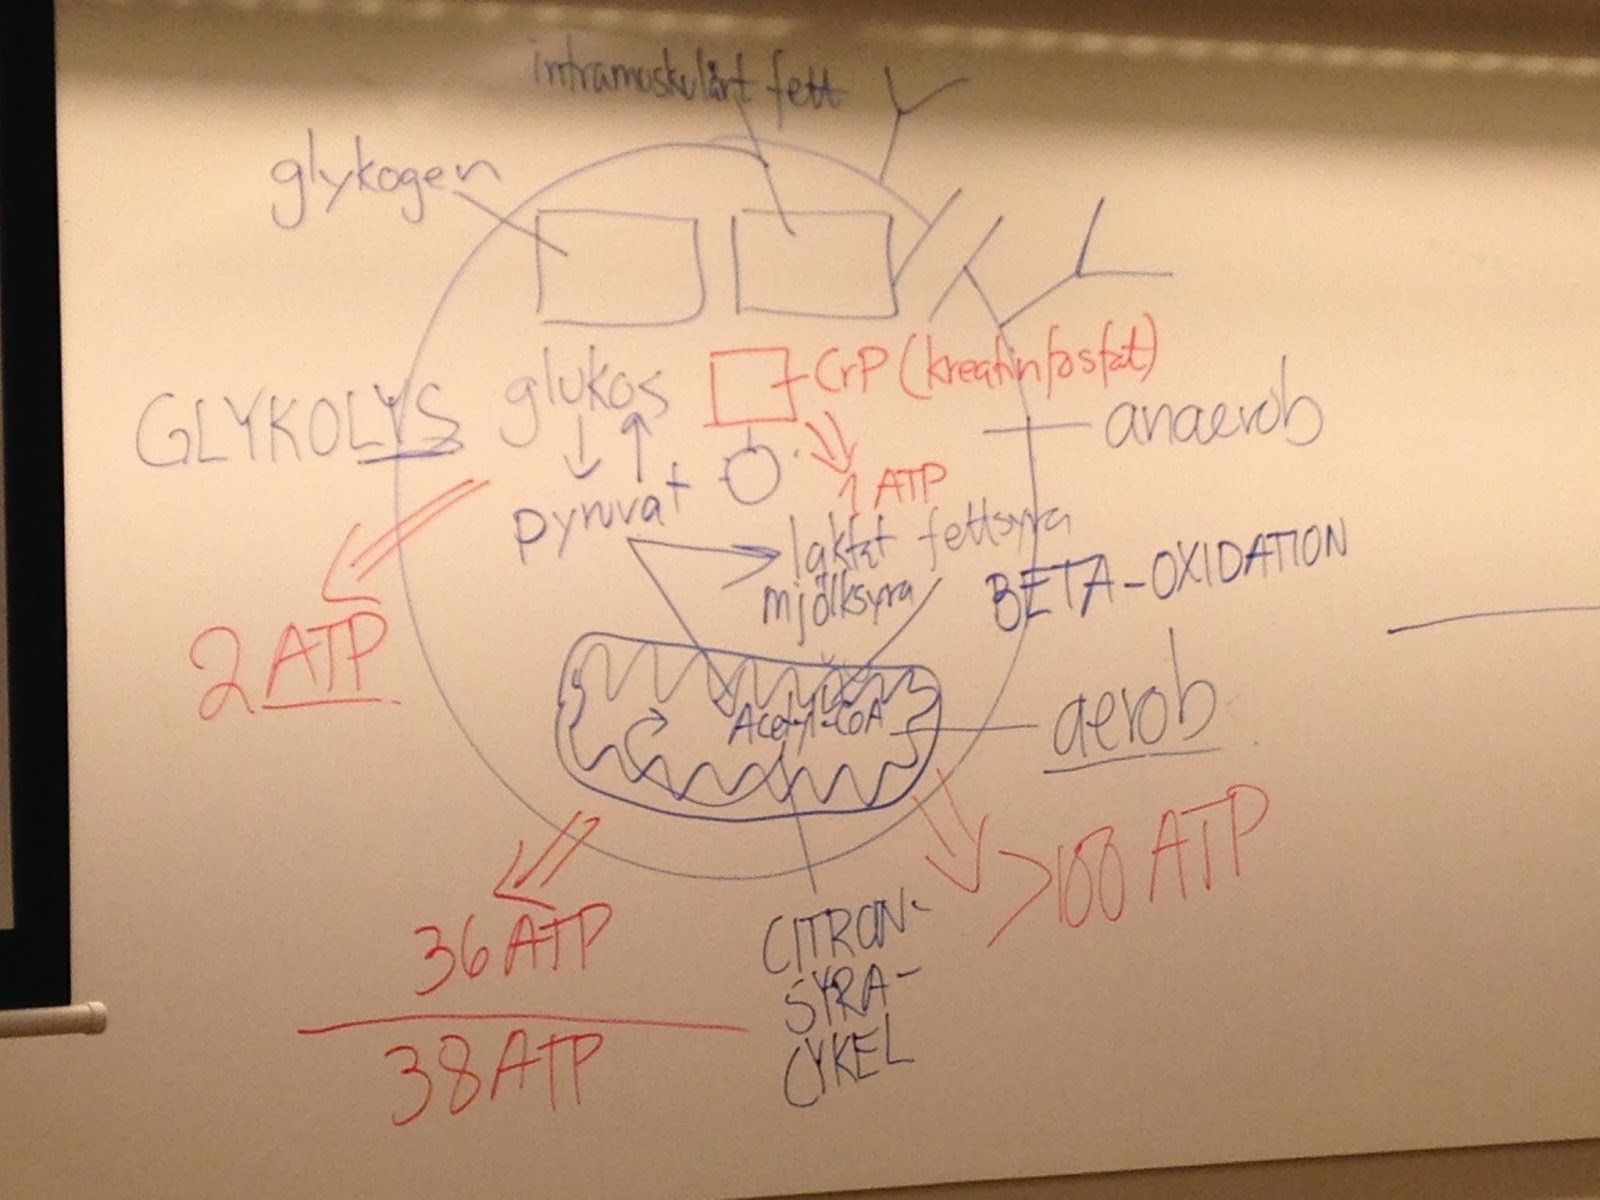 intramuskulärt fett
glykogen
glukos
CrP (kreatinfosfat)
GLYKOLYS
anaerob
1 ATP
pyruvat
laktat
fettsyra
mjölksyra
BETA-OXIDATION
2 ATP
Acetyl-CoA
aerob
>100 ATP
36 ATP
CITRON-
SYRA-
CYKEL
38 ATP